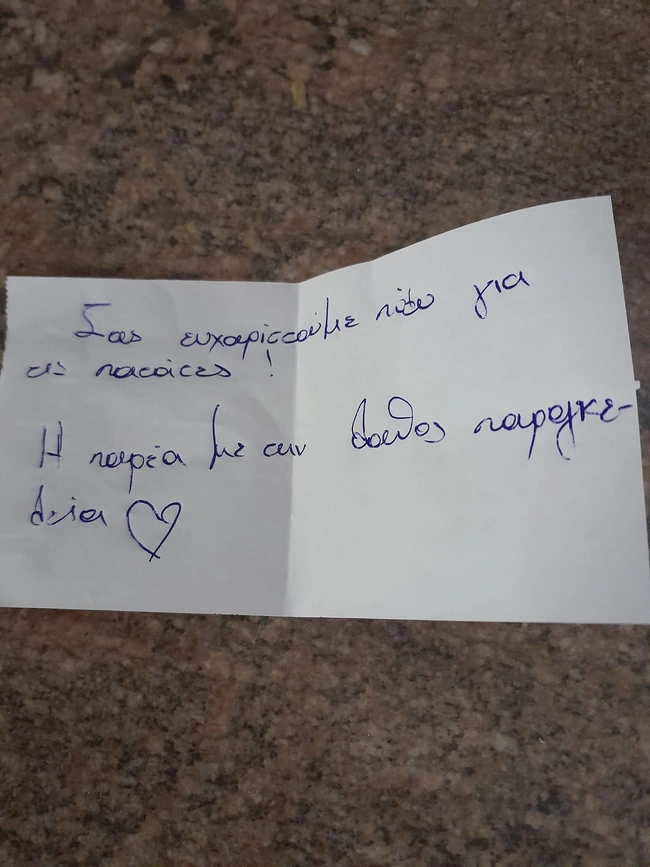 Σας ευχαριστούμε πολύ για
τις πατάτες!
Η παρέα με την λάθος παραγγε-
λεία ♡